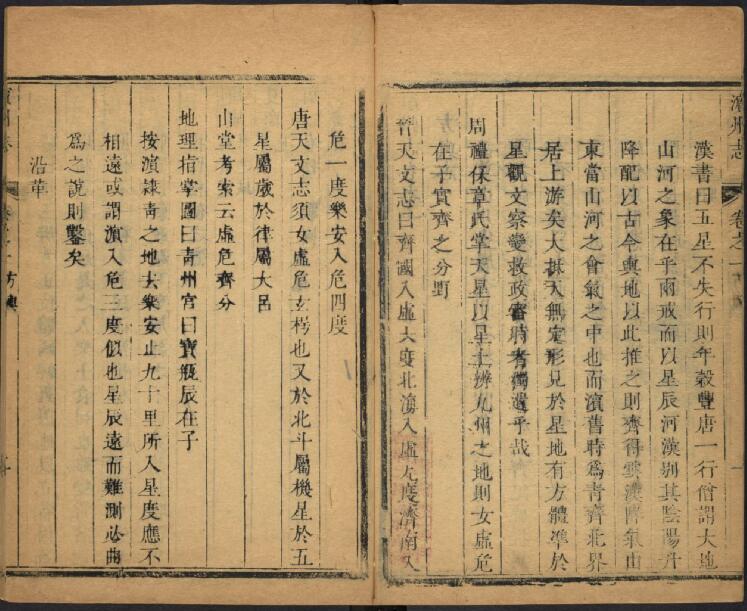 濱州志 卷之一
漢書曰五星不失行則年穀豐唐一行僧謂天地
山河之象在乎兩戒而以星辰河漢别其陰陽升
降配以古今輿地以此推之則齊得雲漢降氣由
東當山河之會氣之中也而濱舊時爲青齊北界
居上游矣大抵天無定形見於星地有方體凖於
星觀文察變救政審時者獨遺乎哉
周禮保章氏掌天星以星土辨九州之地則女虛危
在子實齊之分野
晉天文志曰齊國入虛六度北海入虛九度濟南入
危一度樂安入危四度
唐天文志須女虛危玄枵也又於北斗屬機星於五
星屬歲於律屬大呂
山堂考索云虛危齊分
地理指掌圖曰青州宫曰寶瓶辰在子
按濱隷青之地去樂安止九十里所入星度應不
相遠或謂濱入危三度似也星辰遠而難測必曲
爲之說則鑿矣
沿革
方輿